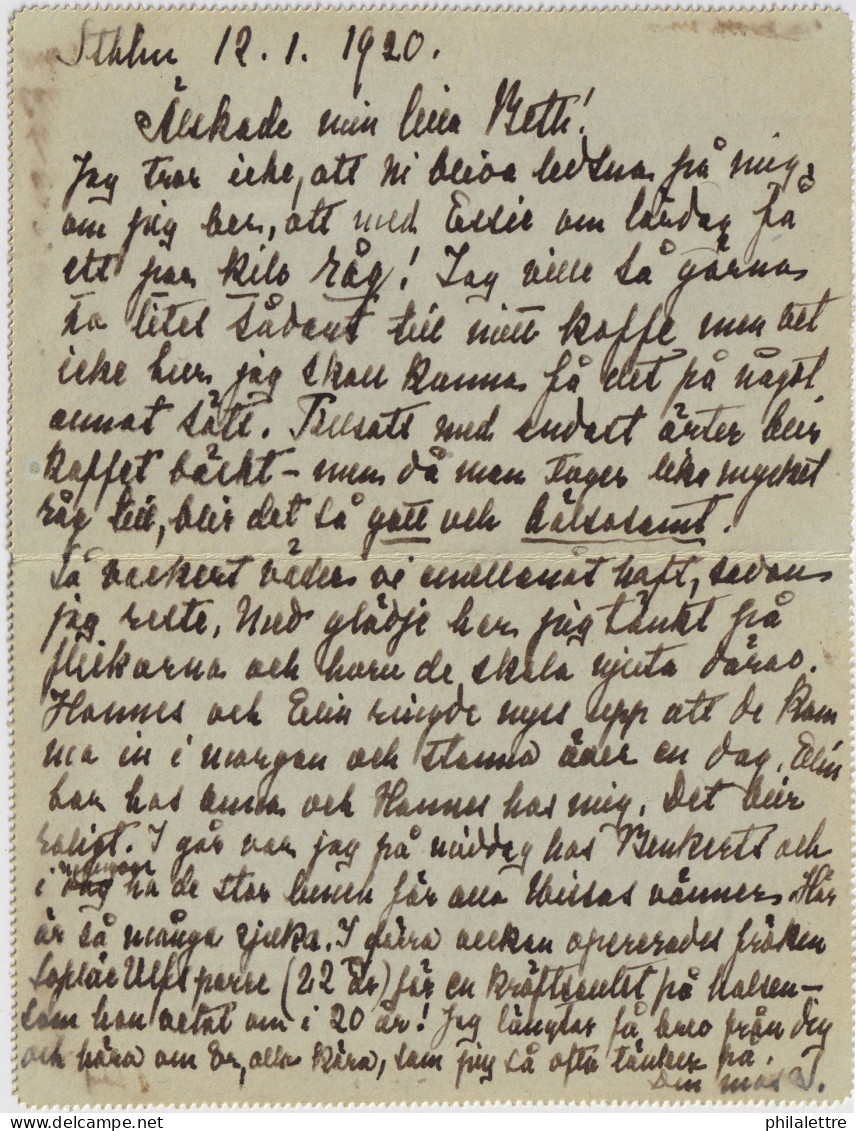 Sthlm 12.1.1920.
Älskade min lilla Beth!
Jag tror icke, att Ni bliva ledsna på mig,
om jag ber, att med Essie om lördag få
ett par kilo råg! Jag ville så gärna
ha litet sådant till mitt kaffe men vet
icke hur jag skall kunna få det på något
annat sätt. Tillsats med endast ärter blir
kaffet bäskt – men då man tager lika mycket
råg till, blir det så gott och hälsosamt.
Så vackert väder vi emellanåt haft, sedan
jag reste. Med glädje har jag tänkt på
flickorna och huru de skola njuta därav.
Hannes och Elin ringde nyss upp att de kom
ma in i morgon och stanna över en dag, Elin
bor hos Anna och Hannes hos mig. Det blir
roligt. I går var jag på middag hos Benkerts och
i morgon ha de stor lunch för alla vänner. Här
är så många sjuka. I förra veckan opererades fröken
Sophie Ulfsparre (72 år) för en kräftsvulst på halsen –
som hon vetat om i 20 år! Jag längtar få brev från dig
och höra om Er, alla kära, som jag så ofta tänker på.
Din mos T.
philalettre